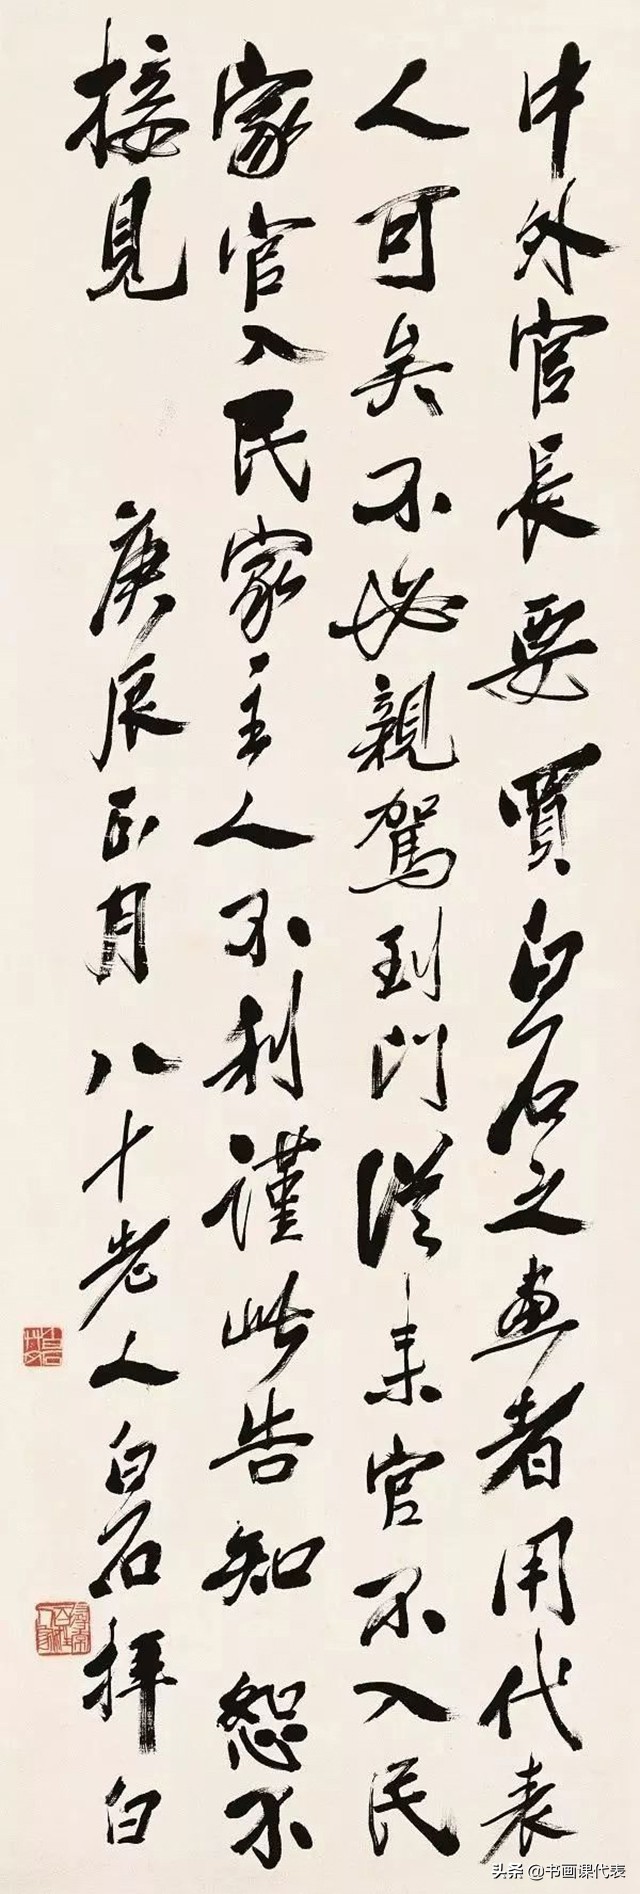 中外官長要買白石之畫者用代表
人可矣不必親駕到門從来官不入民
家官入民家主人不利謹此告知恕不
接見
庚辰正月八十老人白石拜白
头条 @书画课代表